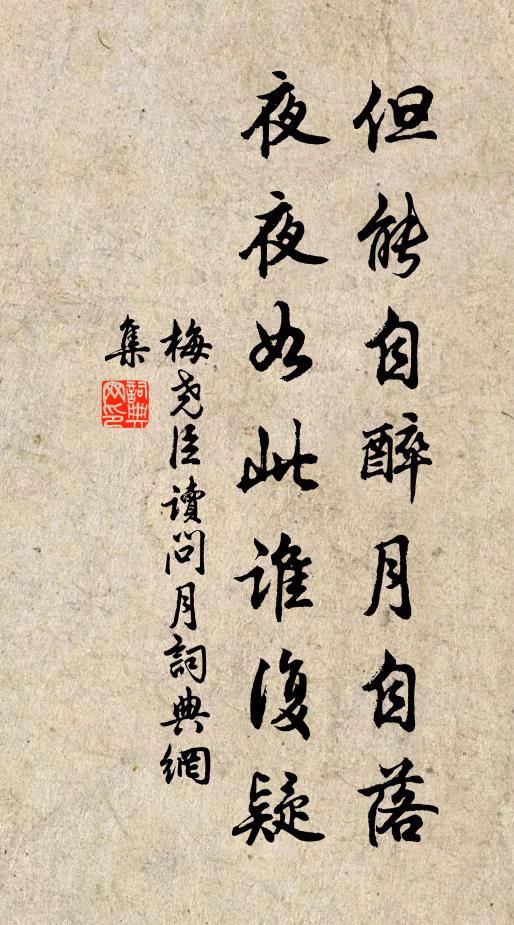 但能自醉月自落
夜夜如此誰復疑
梅堯臣讀問月詞典網
集
詞典
网印